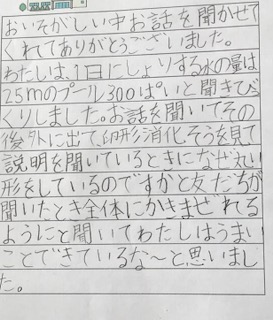 おいそがしい中お話を聞かせて
くれてありがとうございました。
わたしは、1日にしょりする水の量は
25mのプール300ぱいと聞きてび
くりしました。お話を聞いて、その
後外に出て、卵形消化そうを見て
説明を聞いているときになぜれい
形をしているのですかと友だちが
聞いたとき全体にかきまぜれる
ようにと聞いてわたしはうまい
ことできているな〜と、思いまし
た。